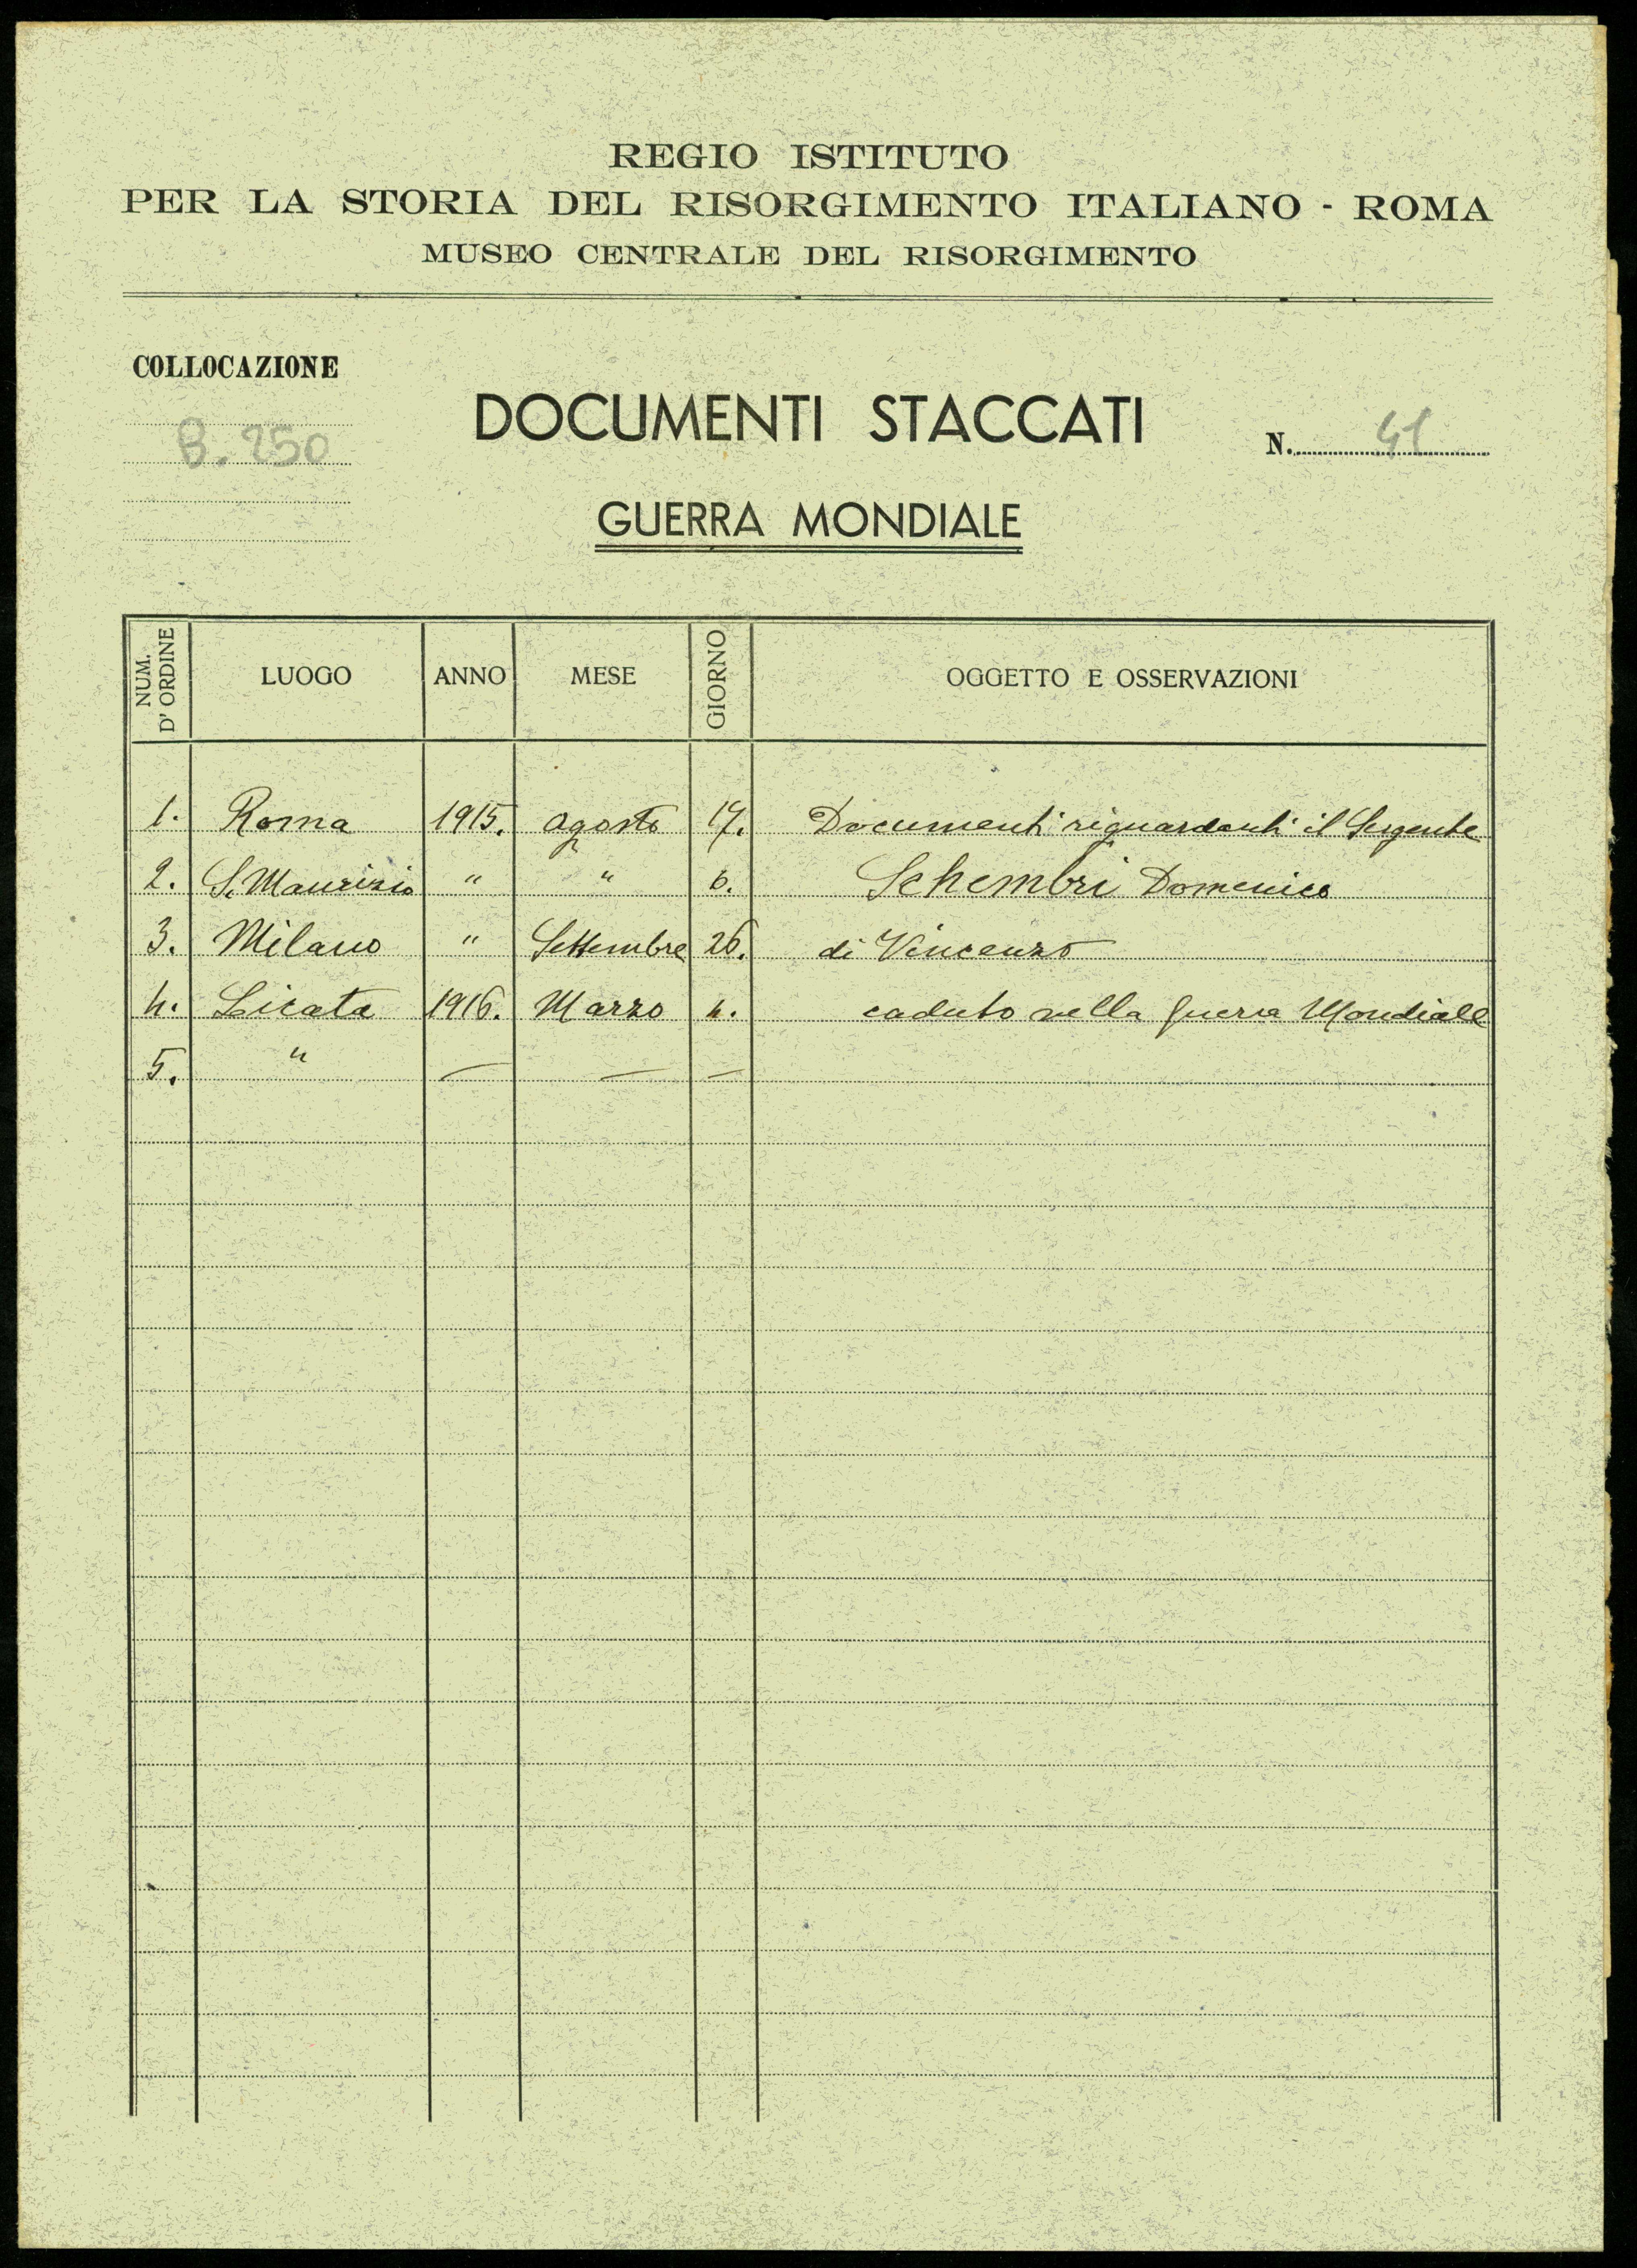 REGIO ISTITUTO
PER LA STORIA DEL RISORGIMENTO ITALIANO - ROMA
MUSEO CENTRALE DEL RISORGIMENTO
COLLOCAZIONE
B. 250
DOCUMENTI STACCATI
N. 41
GUERRA MONDIALE
NUM. D'ORDINE LUOGO ANNO MESE GIORNO OGGETTO E OSSERVAZIONI
1. Roma 1915. agosto 17. Documenti riguardanti il Sergente
2. S. Maurizio " " 6. Schembri Domenico
3. Milano " Settembre 26. di Vincenzo
4. Licata 1916. Marzo 4. caduto nella guerra Mondiale
5. " — — —